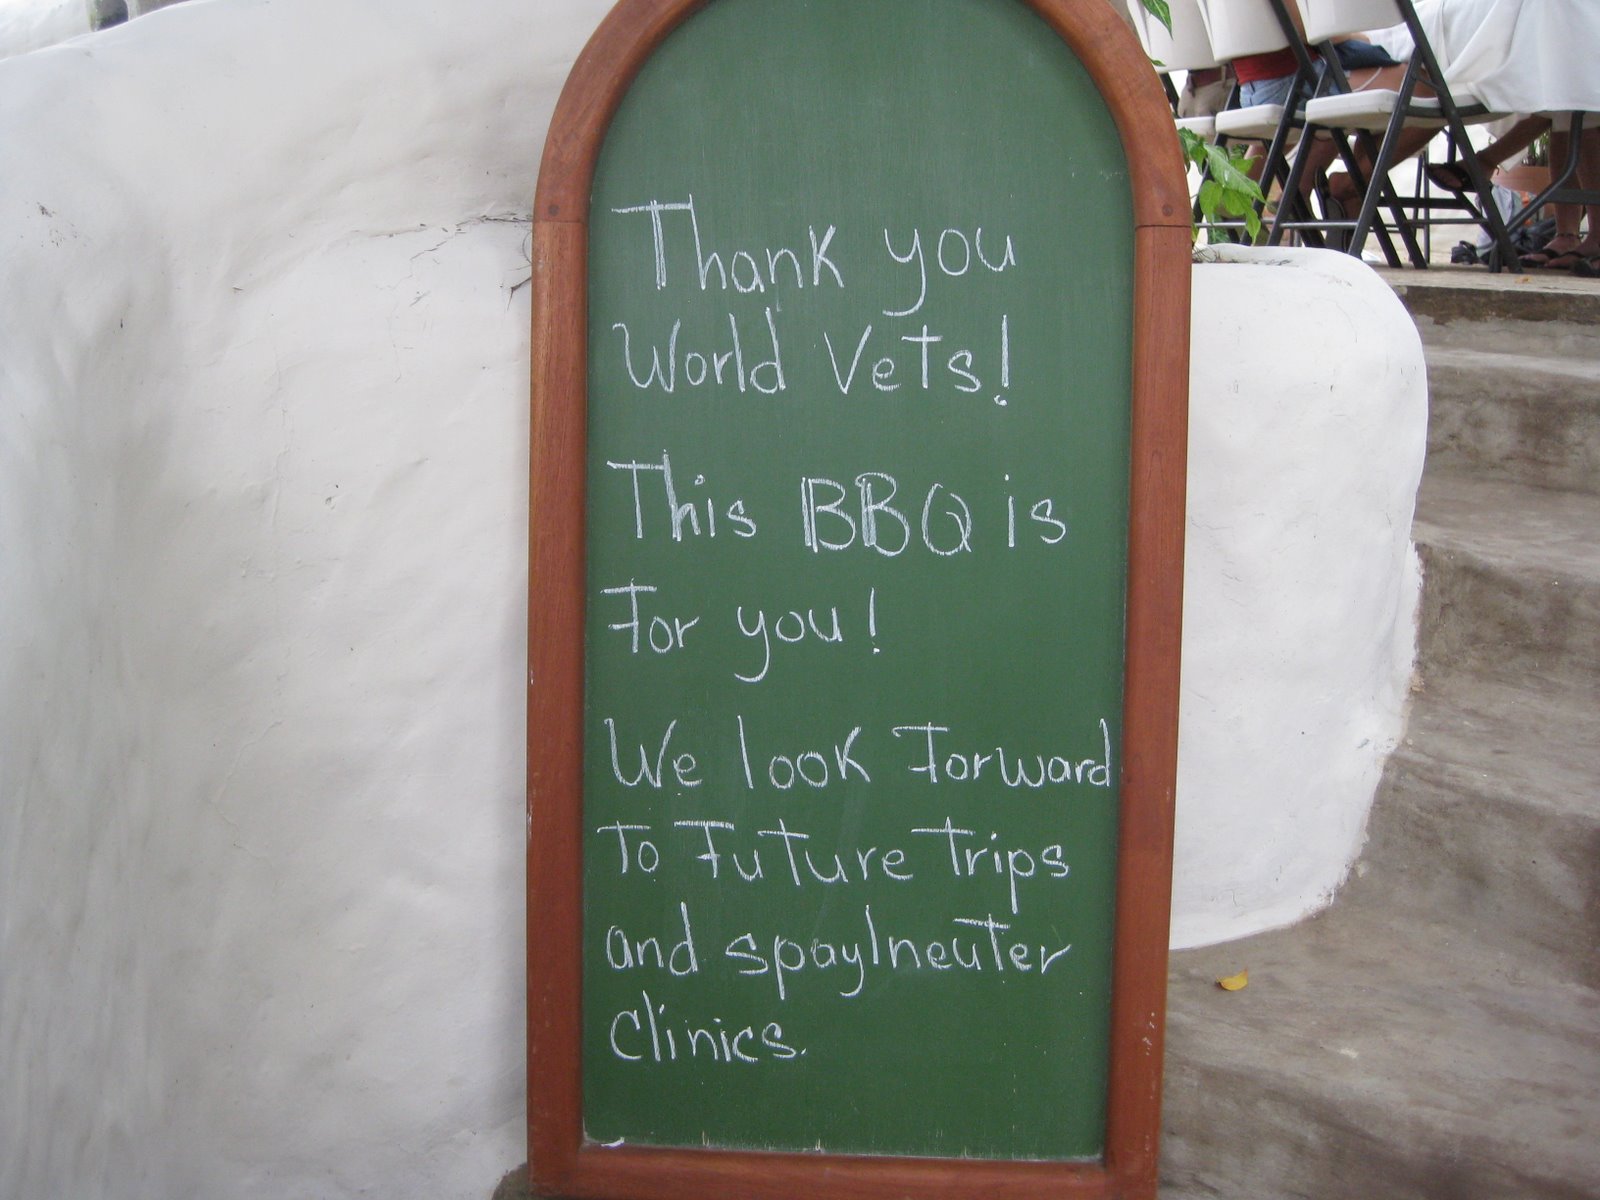 Thank you
World Vets!
This BBQ is
For you!
We look Forward
To Future Trips
and spay/neuter
Clinics.